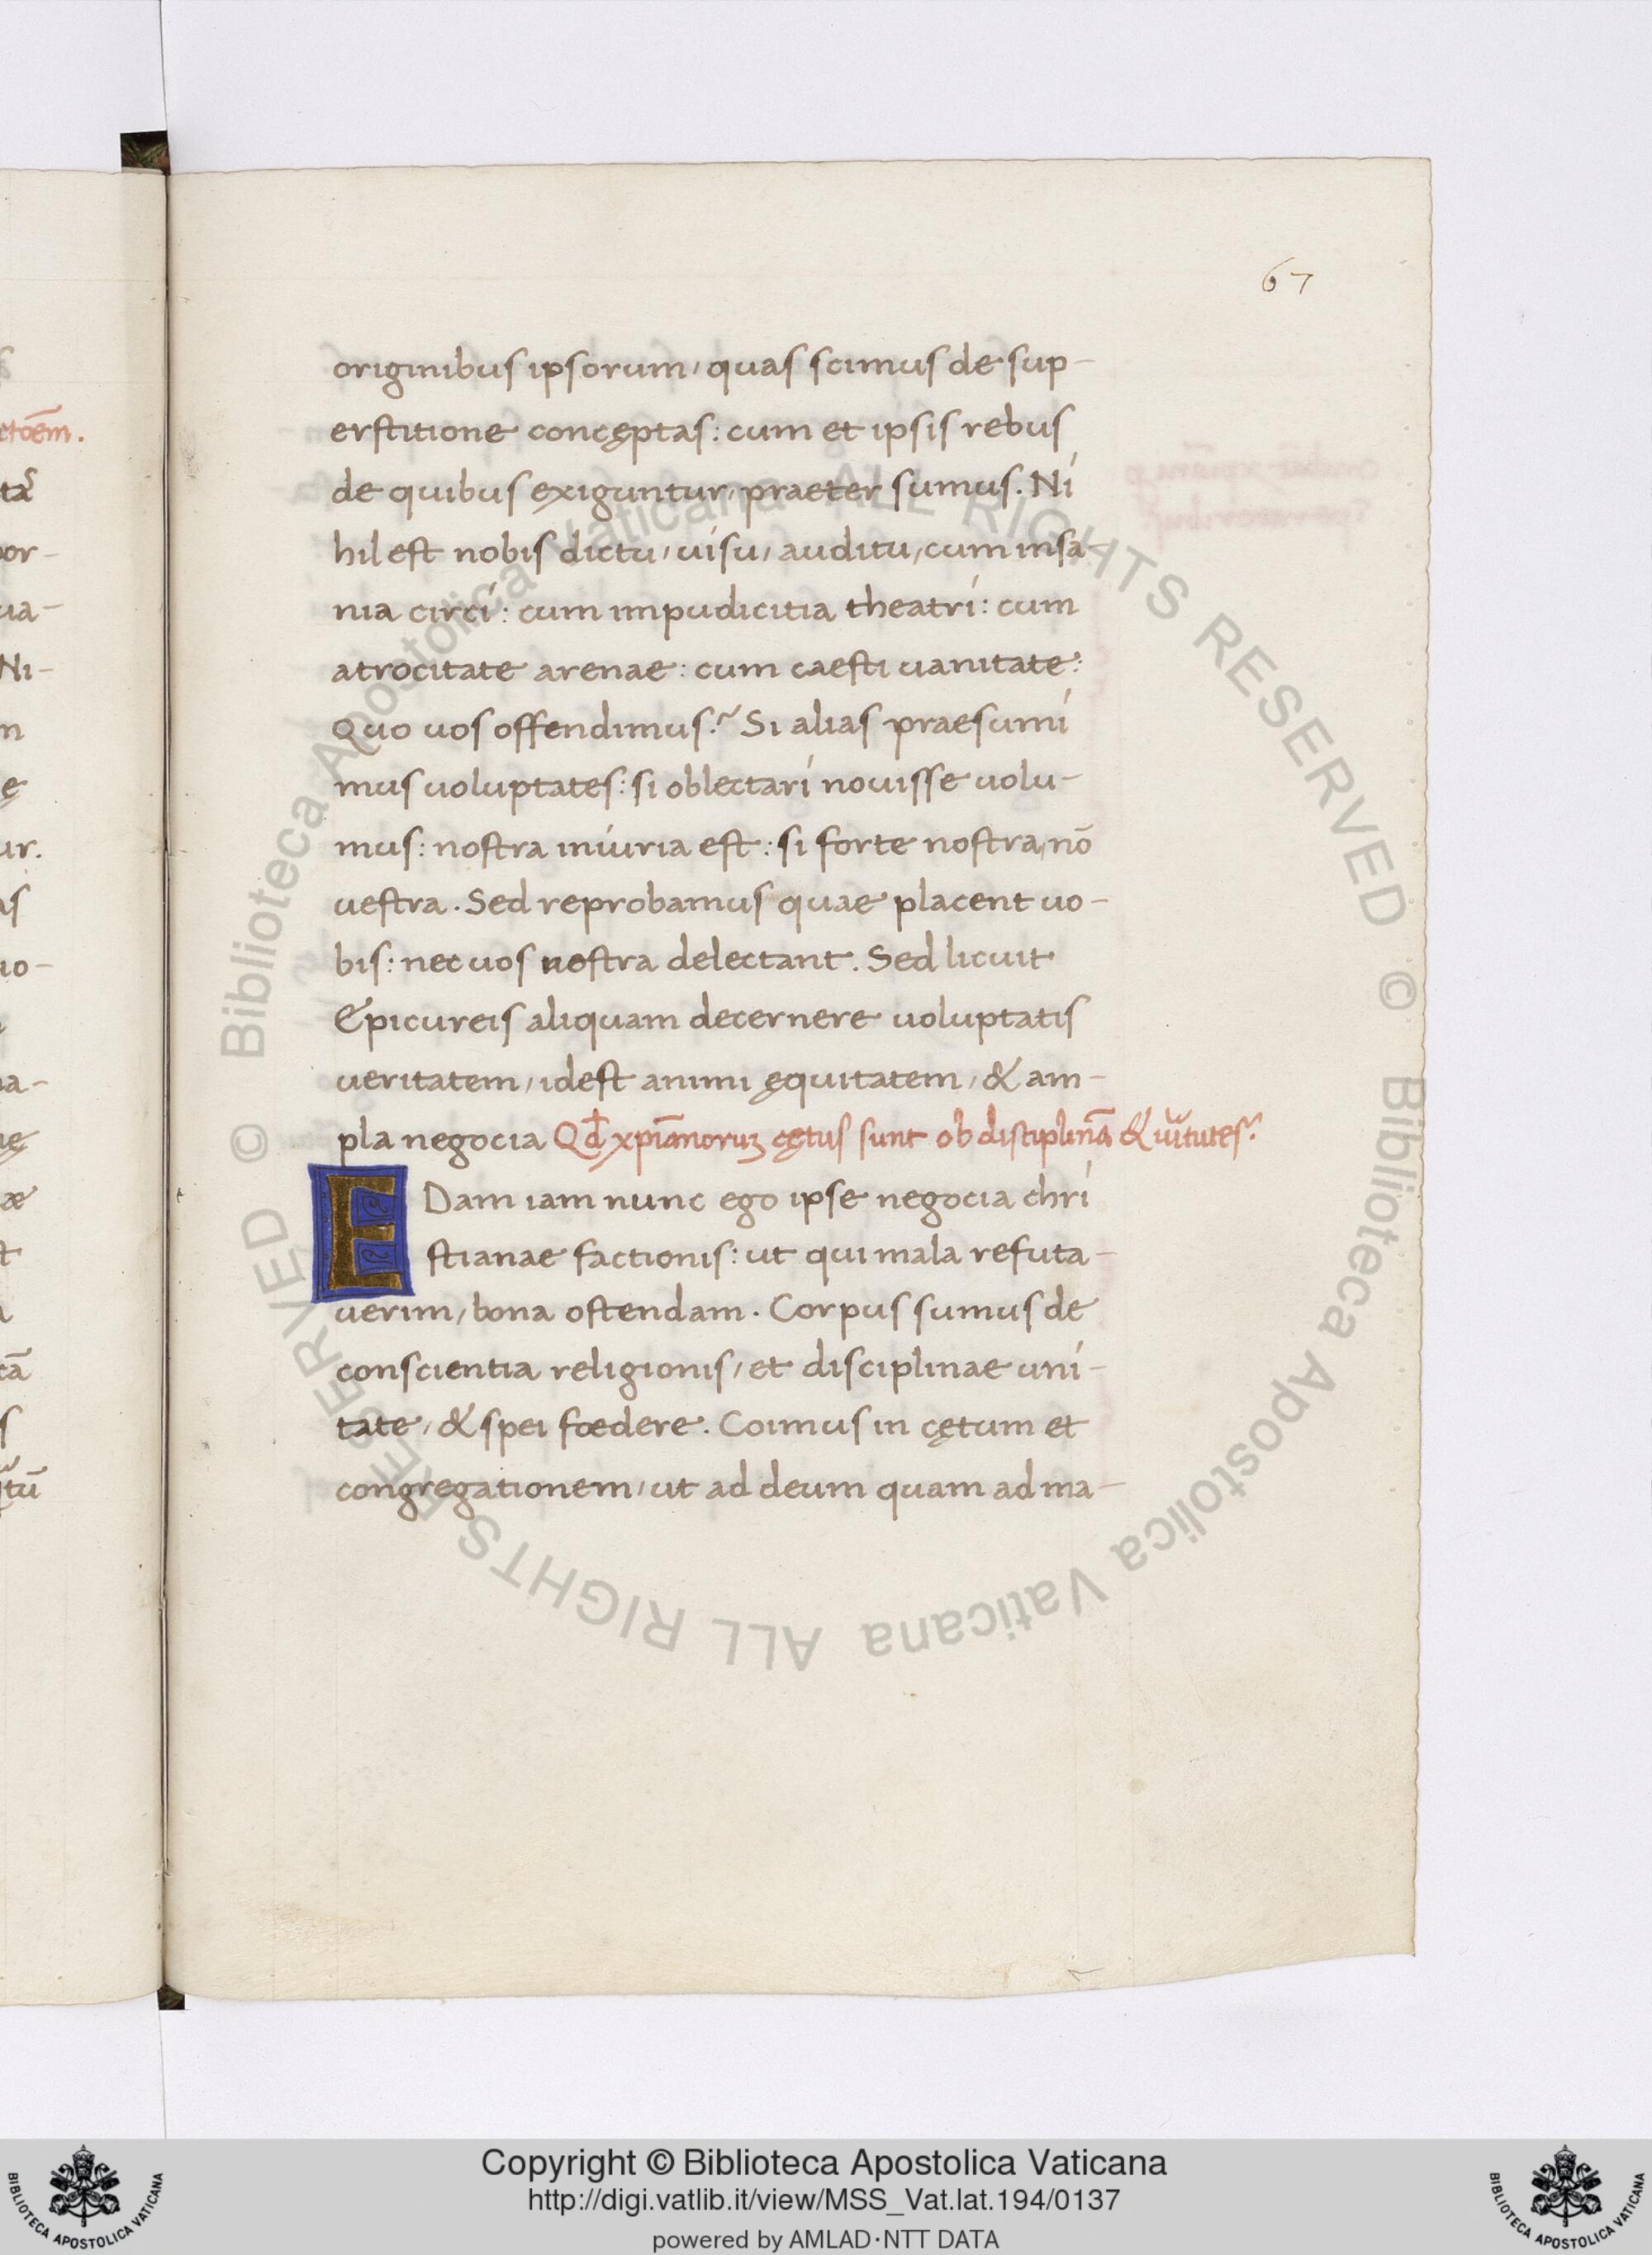 67
originibus ipsorum, quas scimus de sup-
erstitione concęptas: cum et ipsis rebus
de quibus exiguntur, praeter sumus. Ni
hil est nobis dictu, uisu, auditu, cum insa-
nia circi: cum impudicitia theatri: cum
atrocitate arenae: cum caesti uanitate:
Quo uos offendimus? Si alias praesumi
mus uoluptates: si oblectari nouisse uolu-
mus: nostra iniuria est: si forte nostra, nō
uestra. Sed reprobamus quae placent uo-
bis: nec uos nostra delectant. Sed licuit
Epicureis aliquam decernere uoluptatis
ueritatem, idest animi ęquitatem, & am-
pla negocia Qđ xp̄ianoruꝫ cętus sunt ob disciplinā & uirtutes.
EDam iam nunc ego ipse negocia chri
stianae factionis: ut qui mala refuta-
uerim, bona ostendam. Corpus sumus de
conscientia religionis, et disciplinae uni-
tate, & spei fœdere. Coimus in cętum et
congregationem, ut ad deum quam ad ma-
etoēm.
or-
ua-
Ni-
ę
ur.
as
uo-
a-
æ
cā
Biblioteca Apostolica Vaticana ALL RIGHTS RESERVED ©
Biblioteca Apostolica Vaticana ALL RIGHTS RESERVED ©
Copyright © Biblioteca Apostolica Vaticana
http://digi.vatlib.it/view/MSS_Vat.lat.194/0137
powered by AMLAD·NTT DATA
BIBLIOTECA APOSTOLICA VATICANA
BIBLIOTECA APOSTOLICA VATICANA